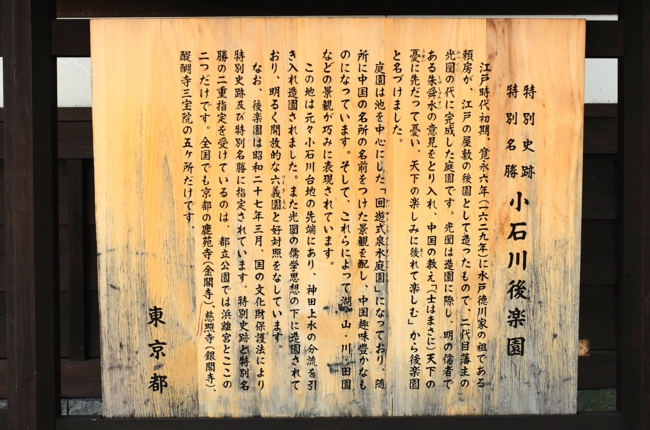 特別史跡
特別名勝
小石川後楽園
江戸時代初期、寛永六年(一六二九年)に水戸徳川家の祖である
頼房が、江戸の屋敷の後園として造ったもので、二代目藩主の
光圀の代に完成した庭園です。光圀は造園に際し、明の儒者で
ある朱舜水の意見をとり入れ、中国の教え「士はまさに天下の
憂に先だって憂い、天下の楽しみに後れて楽しむ」から後楽園
と名づけました。
庭園は池を中心にした「回遊式泉水庭園」になっており、随
所に中国の名所の名前をつけた景観を配し、中国趣味豊かなも
のになっています。そして、これらによって湖・山・川・田園
などの景観が巧みに表現されています。
この地は元々小石川台地の先端にあり、神田上水の分流を引
き入れ造園されました。また光圀の儒学思想の下に造園されて
おり、明るく開放的な六義園と好対照をなしています。
なお、後楽園は昭和二十七年三月、国の文化財保護法により
特別史跡及び特別名勝に指定されています。特別史跡と特別名
勝の二重指定を受けているのは、都立公園では浜離宮とここの
二つだけです。全国でも京都の鹿苑寺(金閣寺)、慈照寺(銀閣寺)、
醍醐寺三宝院の五ヶ所だけです。
東京都